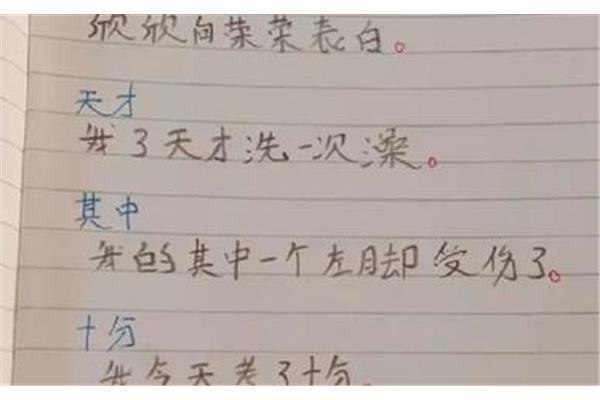 欣欣向荣荣表白。
天才
我3天才洗一次澡。
其中
我的其中一个左脚受伤了。
十分
我今天考了十分。